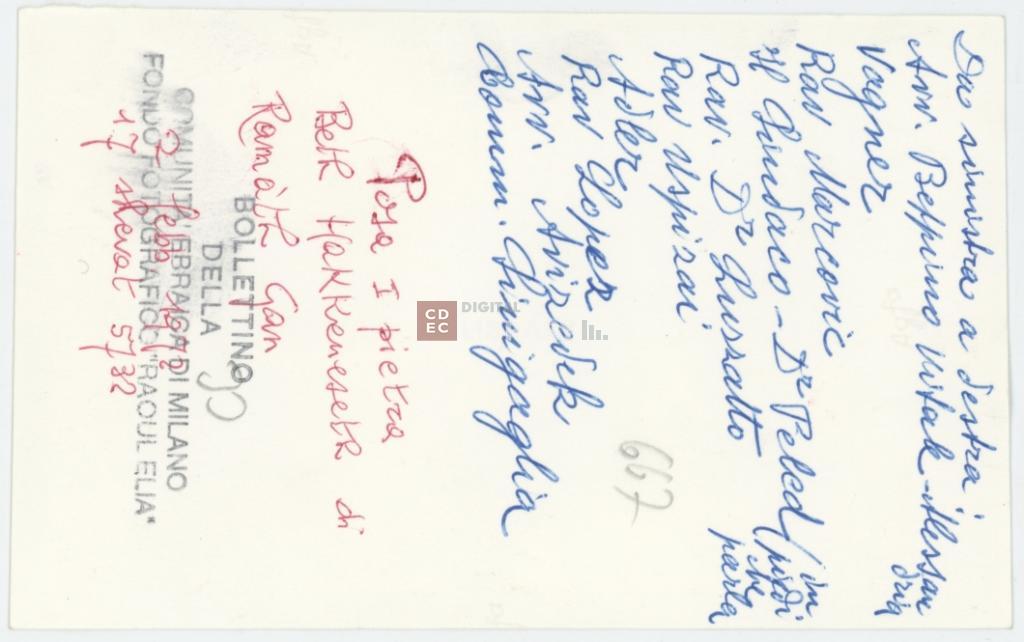 Da sinistra a destra
Avv. Beppino Vitale - Alessandria
Vagner
Rav Marcovic
Il Sindaco - Dr Peled (in piedi che parla
Rav. Dr Luzzatto
Rav Uzpizai
Adler
Rav Lopez
Avv. Avizedek
Comm. Sinigaglia
667
Posa I pietra
Beth Hakkeneseth di
Ramàth Gan
2 febb 1972
17 shevat 5732
BOLLETTINO
DELLA
COMUNITA' EBRAICA DI MILANO
FONDO FOTOGRAFICO "RAOUL ELIA"
CDEC
DIGITAL
LIBRARY